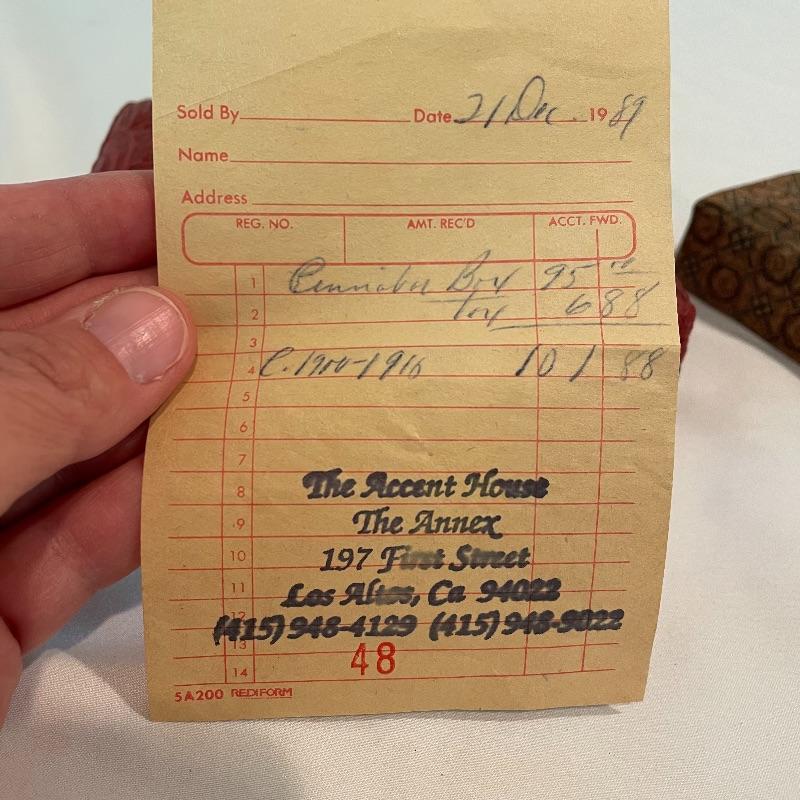 Sold By Date 21 Dec. 19 89
Name
Address
REG. NO. AMT. REC'D ACCT. FWD.
1 Cinnabar Box 95 00
2 Tax 6 88
3
4 C. 1900-1916 101 88
5
6
7
8 The Accent House
9 The Annex
10 197 First Street
11 Los Altos, Ca 94022
12 (415) 948-4129 (415) 948-9022
13 48
14
5A200 REDIFORM